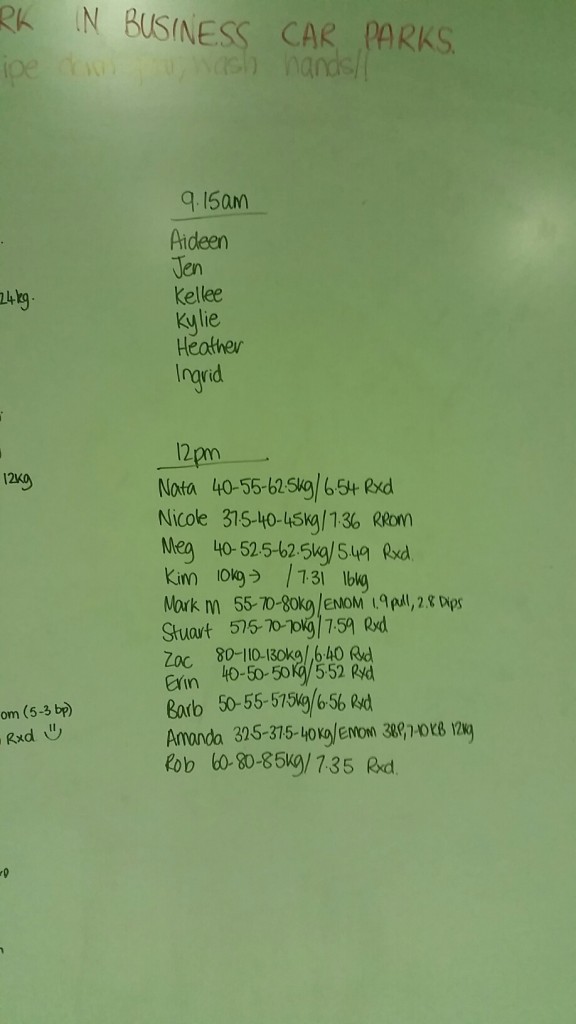 RK IN BUSINESS CAR PARKS.
ipe down wash hands!!
9.15am
Aideen
Jen
24kg.
Kellee
Kylie
Heather
Ingrid
12pm
12kg
Nata 40-55-62.5kg/6.54 Rxd
Nicole 37.5-40-45kg/7.36 RROM
Meg 40-52.5-62.5kg/5.49 Rxd.
Kim 10kg→ /7.31 16kg
Mark M 55-70-80kg/EMOM 1.9 pull, 2.8 Dips
Stuart 57.5-70-70kg/7.59 Rxd
Zac 80-110-130kg/6.40 Rxd
Erin 40-50-50kg/5.52 Rxd
Barb 50-55-57.5kg/6.56 Rxd
om (5-3 bp)
Rxd
Amanda 32.5-37.5-40kg/EMOM 3BP, 7-10KB 12kg
Rob 60-80-85kg/7.35 Rxd.